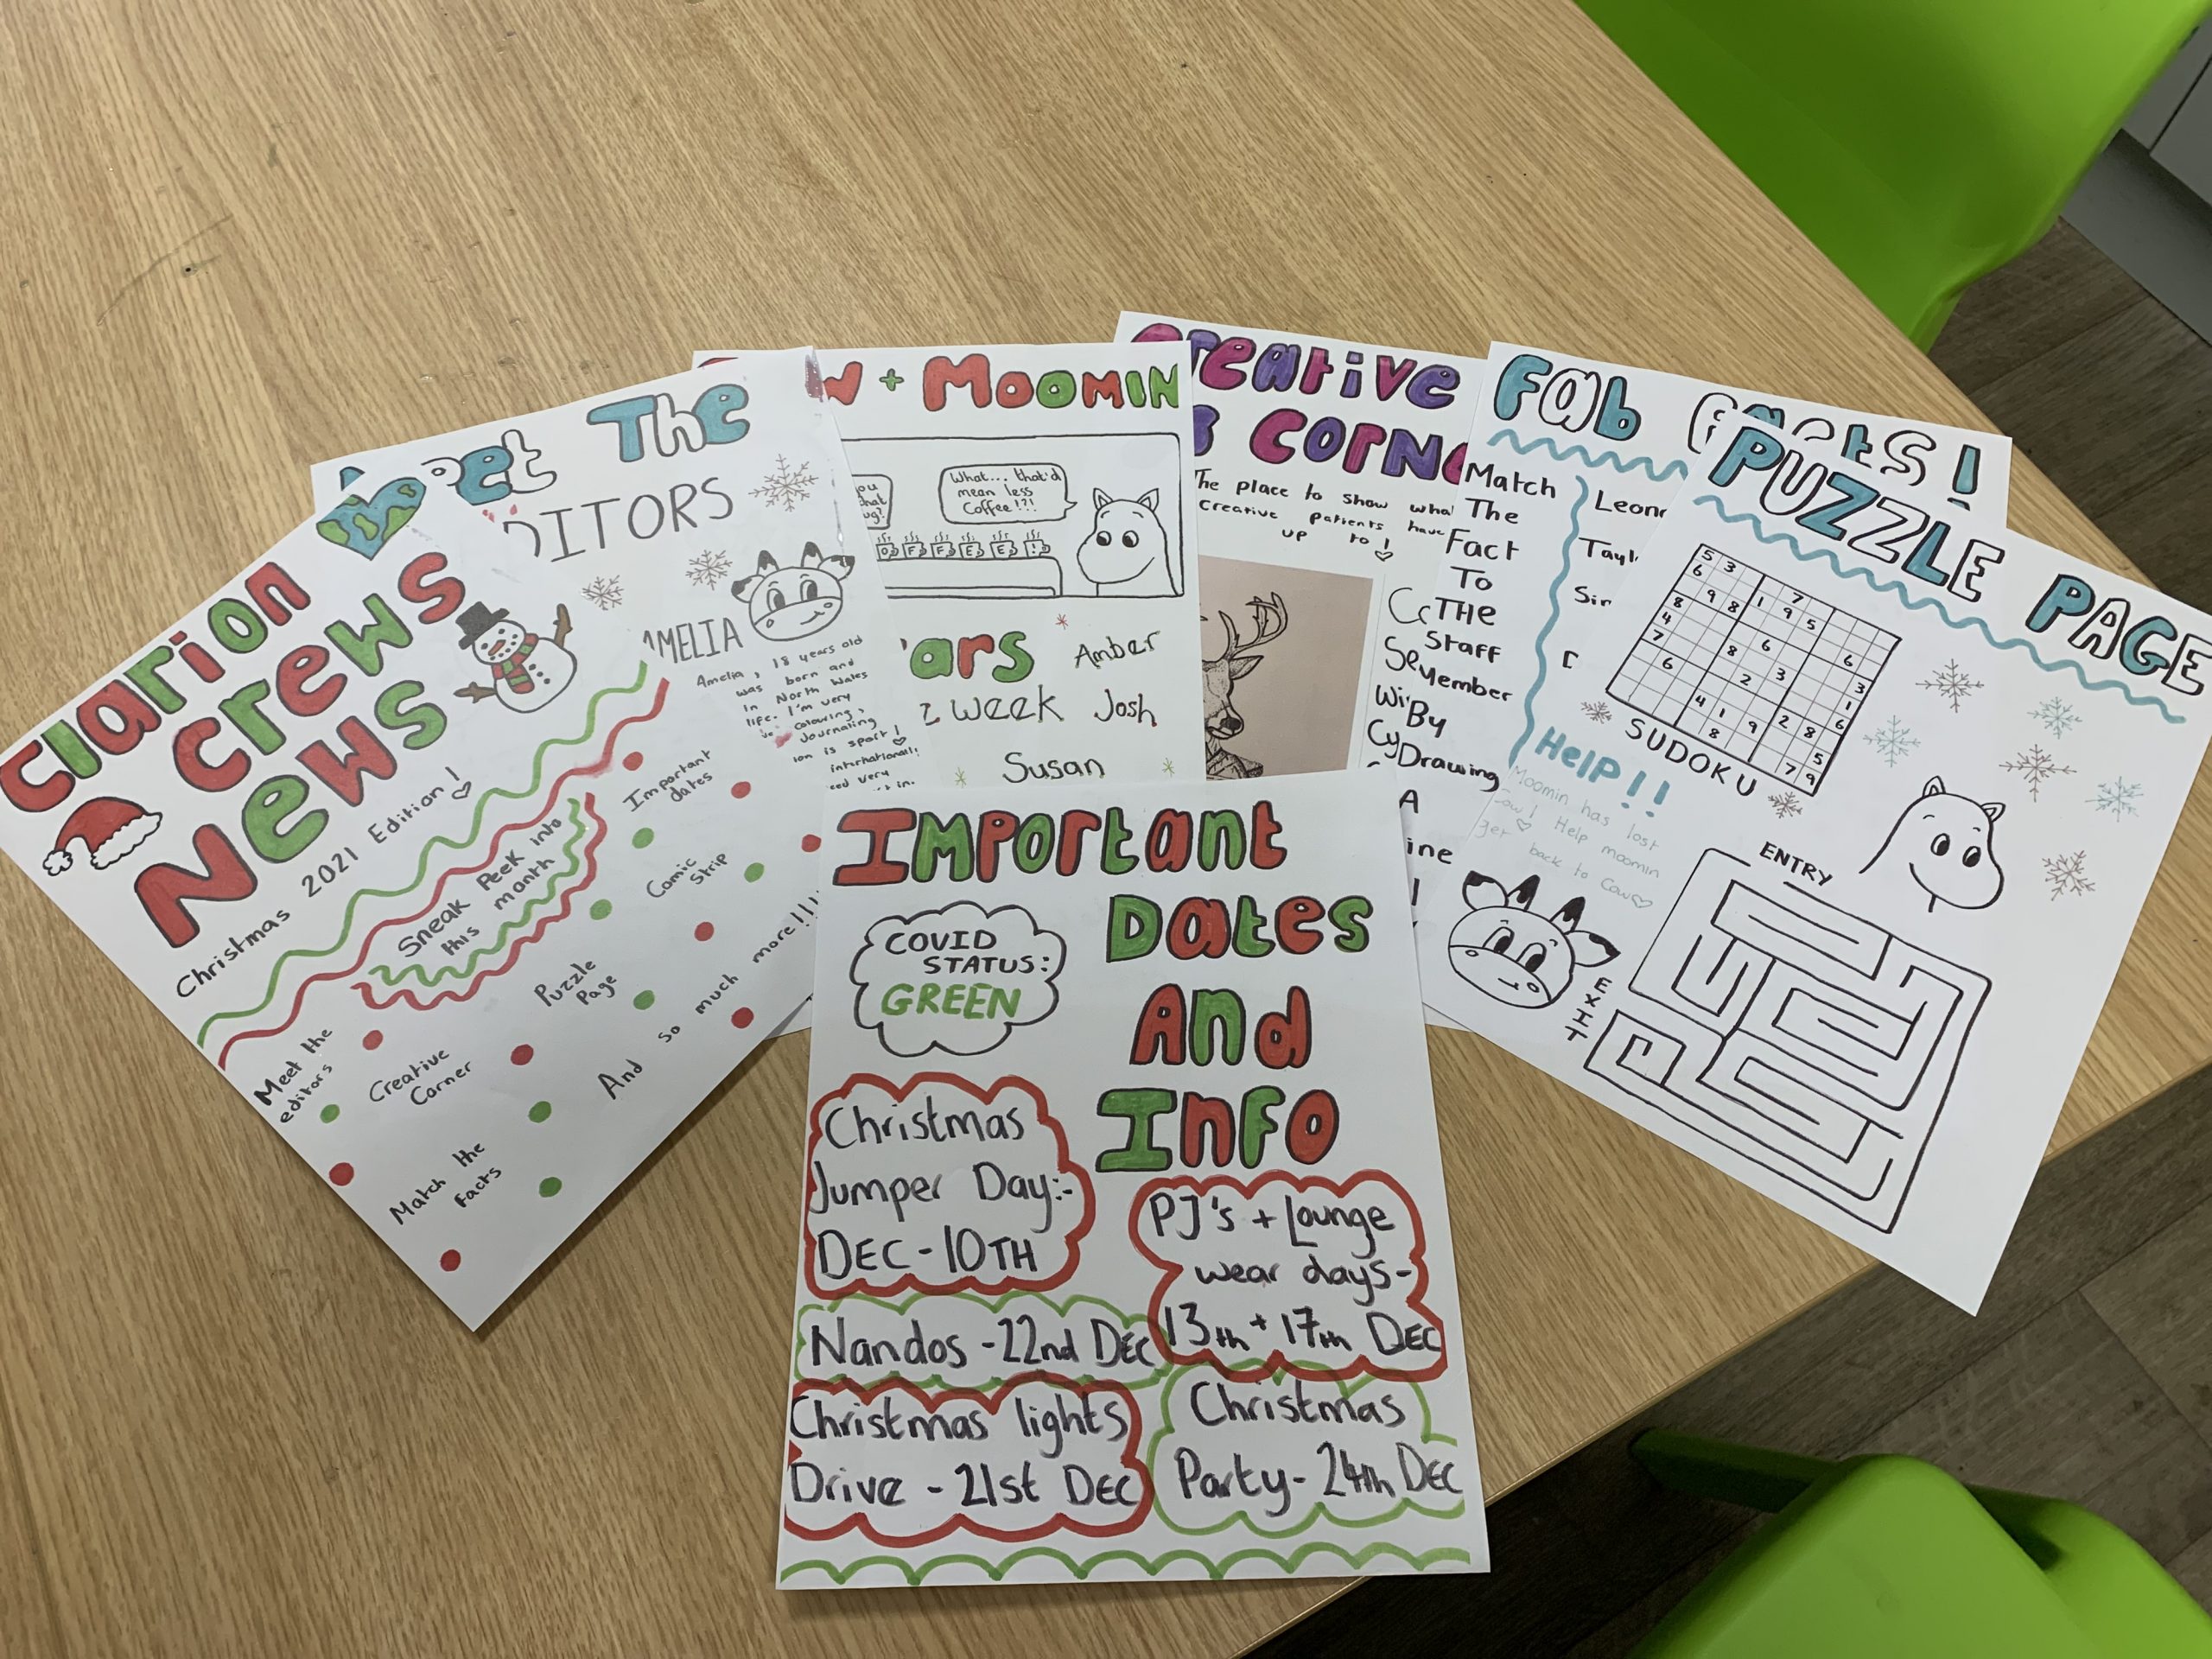 Clarion
Crews
News
Christmas 2021 Edition!
Sneak Peek into
this month
Meet the
editors
Creative
Corner
Puzzle
Page
Comic
Strip
Important
dates
Match the
Facts
And so much more!!!
Meet The
EDITORS
AMELIA
Amelia, 18 years old
was born and
in North Wales
life. I'm very
colouring,
Journaling
ion is sport!
international!
very
in.
+ MOOMIN
What... that'd
mean less
Coffee!?!
ars
week
Amber
Josh
Susan
Creative
CORN
The place to show what
creative patients have
up to!
Fab Facts!
Match
The
Fact
To
THe
Staff
Member
By
Drawing
A
ine
Leon
Tayl
PUZZLE PAGE
5 3 7
6 1 9 5
9 8 6
8 6 3
4 8 3 1
7 2 6
6 2 8
4 1 9 5
8 7 9
SUDOKU
Help!!
Moomin has lost
Cow! Help moomin
get back to Cow
ENTRY
EXIT
Important
Dates
And
Info
COVID
STATUS:
GREEN
Christmas
Jumper Day:-
DEC-10TH
PJ's + Lounge
wear days-
13th + 17th DEC
Nandos -22nd DEC
Christmas lights
Drive - 21st DEC
Christmas
Party- 24th DEC